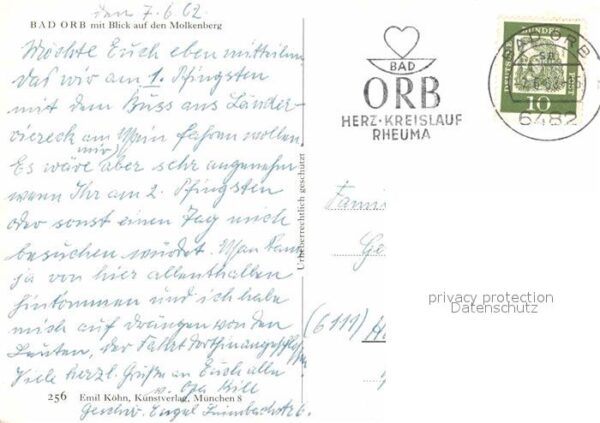 den 7.6.62
BAD ORB mit Blick auf den Molkenberg
Möchte Euch eben mitteilen
das wir am 1. Pfingsten
mit dem Buss ans Länder-
viereck am Main fahren wollen
Es wäre mir aber sehr angenehm
wenn Ihr am 2. Pfingsten
oder sonst einen Tag mich
besuchen würdet. Man kann
ja von hier allenthalben
hinkommen und ich habe
mich auf drängen von den
Leuten, der Fahrt dorthin angeschlossen
Viele herzl. Grüße an Euch alle
v. Opa
256 Emil Köhn, Kunstverlag, München 8
Geschw. Engel
Urheberrechtlich geschützt
BAD
ORB
HERZ-KREISLAUF
RHEUMA
BAD ORB
6482
DEUTSCHE BUNDESPOST
10
Famil
privacy protection
Datenschutz
(6111)